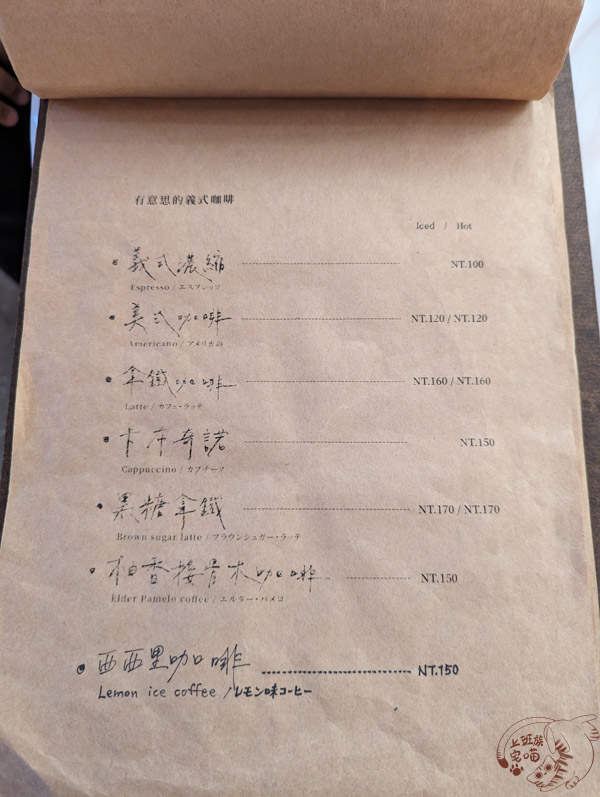 有意思的義式咖啡
Iced / Hot
義式濃縮 NT.100
Espresso / エスプレッソ
美式咖啡 NT.120 / NT.120
Americano / アメリカの
拿鐵咖啡 NT.160 / NT.160
Latte / カフェ・ラッテ
卡布奇諾 NT.150
Cappuccino / カプチーノ
黑糖拿鐵 NT.170 / NT.170
Brown sugar latte / ブラウンシュガー・ラッテ
柚香接骨木咖啡 NT.150
Elder Pamelo coffee / エルダー・パメロ
西西里咖啡 NT.150
Lemon ice coffee / レモン味コーヒー
上班族
吃喵